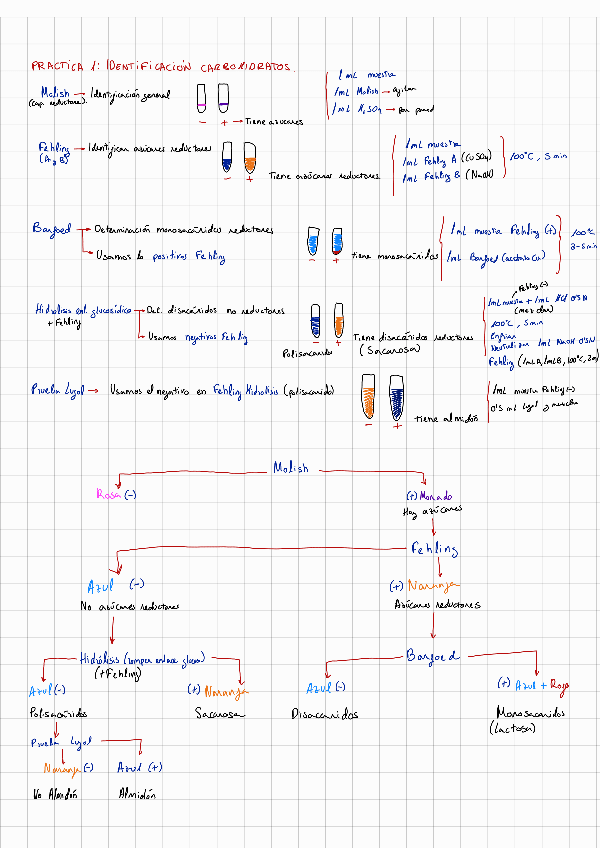 PRACTICA 1: IDENTIFICACIÓN CARBOHIDRATOS.
Molish → Identificación general
(cap. reductora).
- + → Tiene azucares
1 mL muestra
1mL Molish → agitar
1mL H2SO4 → por pared
Fehling → Identificar azúcares reductores
(A y B)
- + Tiene azúcares reductores
1mL muestra
1mL Fehling A (CuSO4)
1mL Fehling B (NaOH)
100°C, 5min
Barfoed → Determinación monosacáridos reductores
→ Usamos lo positivos Fehling
- + tiene monosacáridos
1mL muestra Fehling (+)
1mL Barfoed (acetato Cu)
100°C
3-5min
Hidrólisis enl. glucosídico → Det. disacáridos no reductores
+ Fehling
→ Usamos negativos Fehling
- +
Polisacarido
Tiene disacáridos reductores
(Sacarosa)
Fehling (-)
1mL muestra + 1mL HCl 0'5N
(mezclar)
100°C, 5min
Enfriar
Neutralizar 1mL NaOH 0'5N
Fehling (1mLA, 1mLB, 100°C, 2m)
Prueba Lugol → Usamos el negativo en Fehling Hidrolisis (polisacarido)
- + tiene almidón
1mL muestra Fehling (-)
0'5 mL Lugol y mezclar
Molish
Rosa (-)
(+) Morado
Hay azúcares
Fehling
Azul (-)
No azúcares reductores
(+) Naranja
Azúcares reductores
Hidrólisis (romper enlace glucos)
(+Fehling)
Barfoed
Azul (-)
Polisacáridos
(+) Naranja
Sacarosa
Azul (-)
Disacaridos
(+) Azul + Rojo
Monosacaridos
(Lactosa)
Prueba Lugol
Naranja (-)
Azul (+)
No Almidón
Almidón